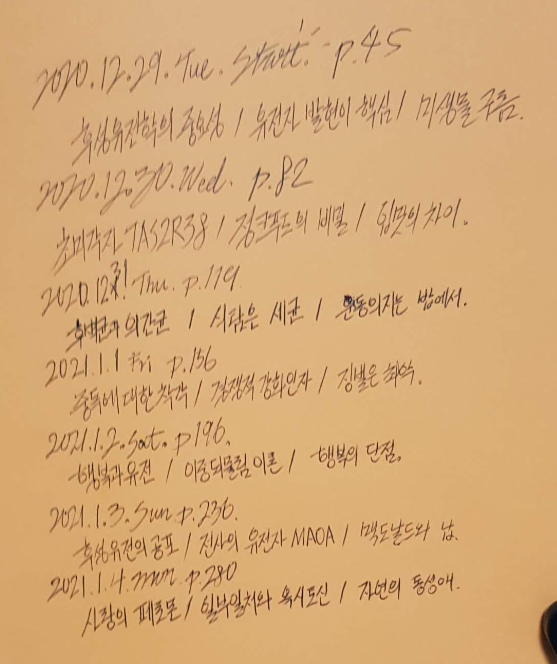 2020.12.29. Tue. Start! - p.45
후성유전학의 중요성 / 유전자 발현이 핵심 / 미생물 구름.
2020.12.30. Wed. p.82
초미각자 TAS2R38 / 정크푸드의 비밀 / 입맛의 차이.
2020.12.31 Thu. p.119
의간균 / 사람은 세균 / 운동의지는 밥에서.
2021.1.1 Fri p.156
중독에 대한 착각 / 경쟁적 강화인자 / 징벌은 최악.
2021.1.2. Sat. p196.
행복과 유전 / 이중되물림 이론 / 행복의 단점.
2021.1.3. Sun p.236.
후성유전의 공포 / 전사의 유전자 MAOA / 맥도날드와 납.
2021.1.4. mon. p.280
사랑의 페로몬 / 일부일처와 옥시토신 / 자연의 동성애.